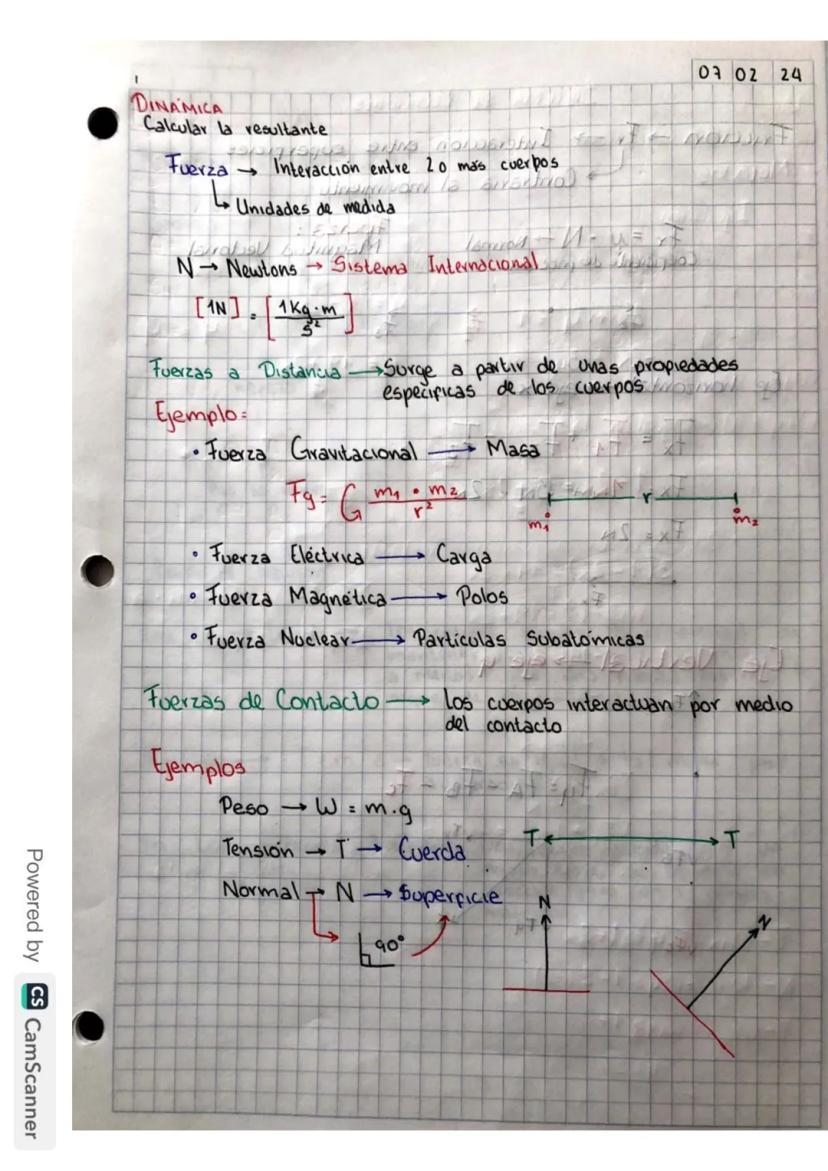 07 02 24
DINÁMICA
Calcular la resultante
Fuerza → Interacción entre 2 o más cuerpos
↳ Unidades de medida
N → Newtons → Sistema Internacional
[1N] = [1Kg·m / s²]
Fuerzas a Distancia → Surge a partir de unas propiedades
específicas de los cuerpos
Ejemplo:
• Fuerza Gravitacional → Masa
Fg = G m₁ • m₂ / r²
r
m₁ m₂
• Fuerza Eléctrica → Carga
• Fuerza Magnética → Polos
• Fuerza Nuclear → Partículas Subatómicas
Fuerzas de Contacto → los cuerpos interactuan por medio
del contacto
Ejemplos
Peso → W = m.g
Tensión → T → Cuerda
T ↔ T
Normal → N → Superficie
N
90°
N
Powered by CS CamScanner